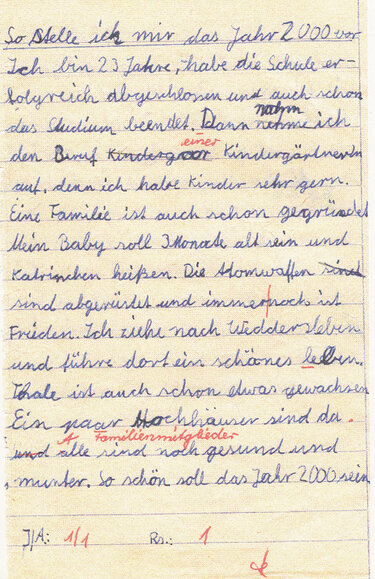 So stelle ich mir das Jahr 2000 vor
Ich bin 23 Jahre, habe die Schule er-
folgreich abgeschlossen und auch schon
das Studium beendet. Dann nehme nahm ich
den Beruf Kindergar einer Kindergärtnerin
auf, denn ich habe Kinder sehr gern.
Eine Familie ist auch schon gegründet
Mein Baby soll 3 Monate alt sein und
Katrinchen heißen. Die Atomwaffen sind
sind abgerüstet und immer noch ist
Frieden. Ich ziehe nach Weddersleben
und führe dort ein schönes leben.
Thale ist auch schon etwas gewachsen
Ein paar Hochhäuser sind da.
A Familienmitglieder
und alle sind noch gesund und
munter. So schön soll das Jahr 2000 sein
I/A.: 1/1 Rs.: 1